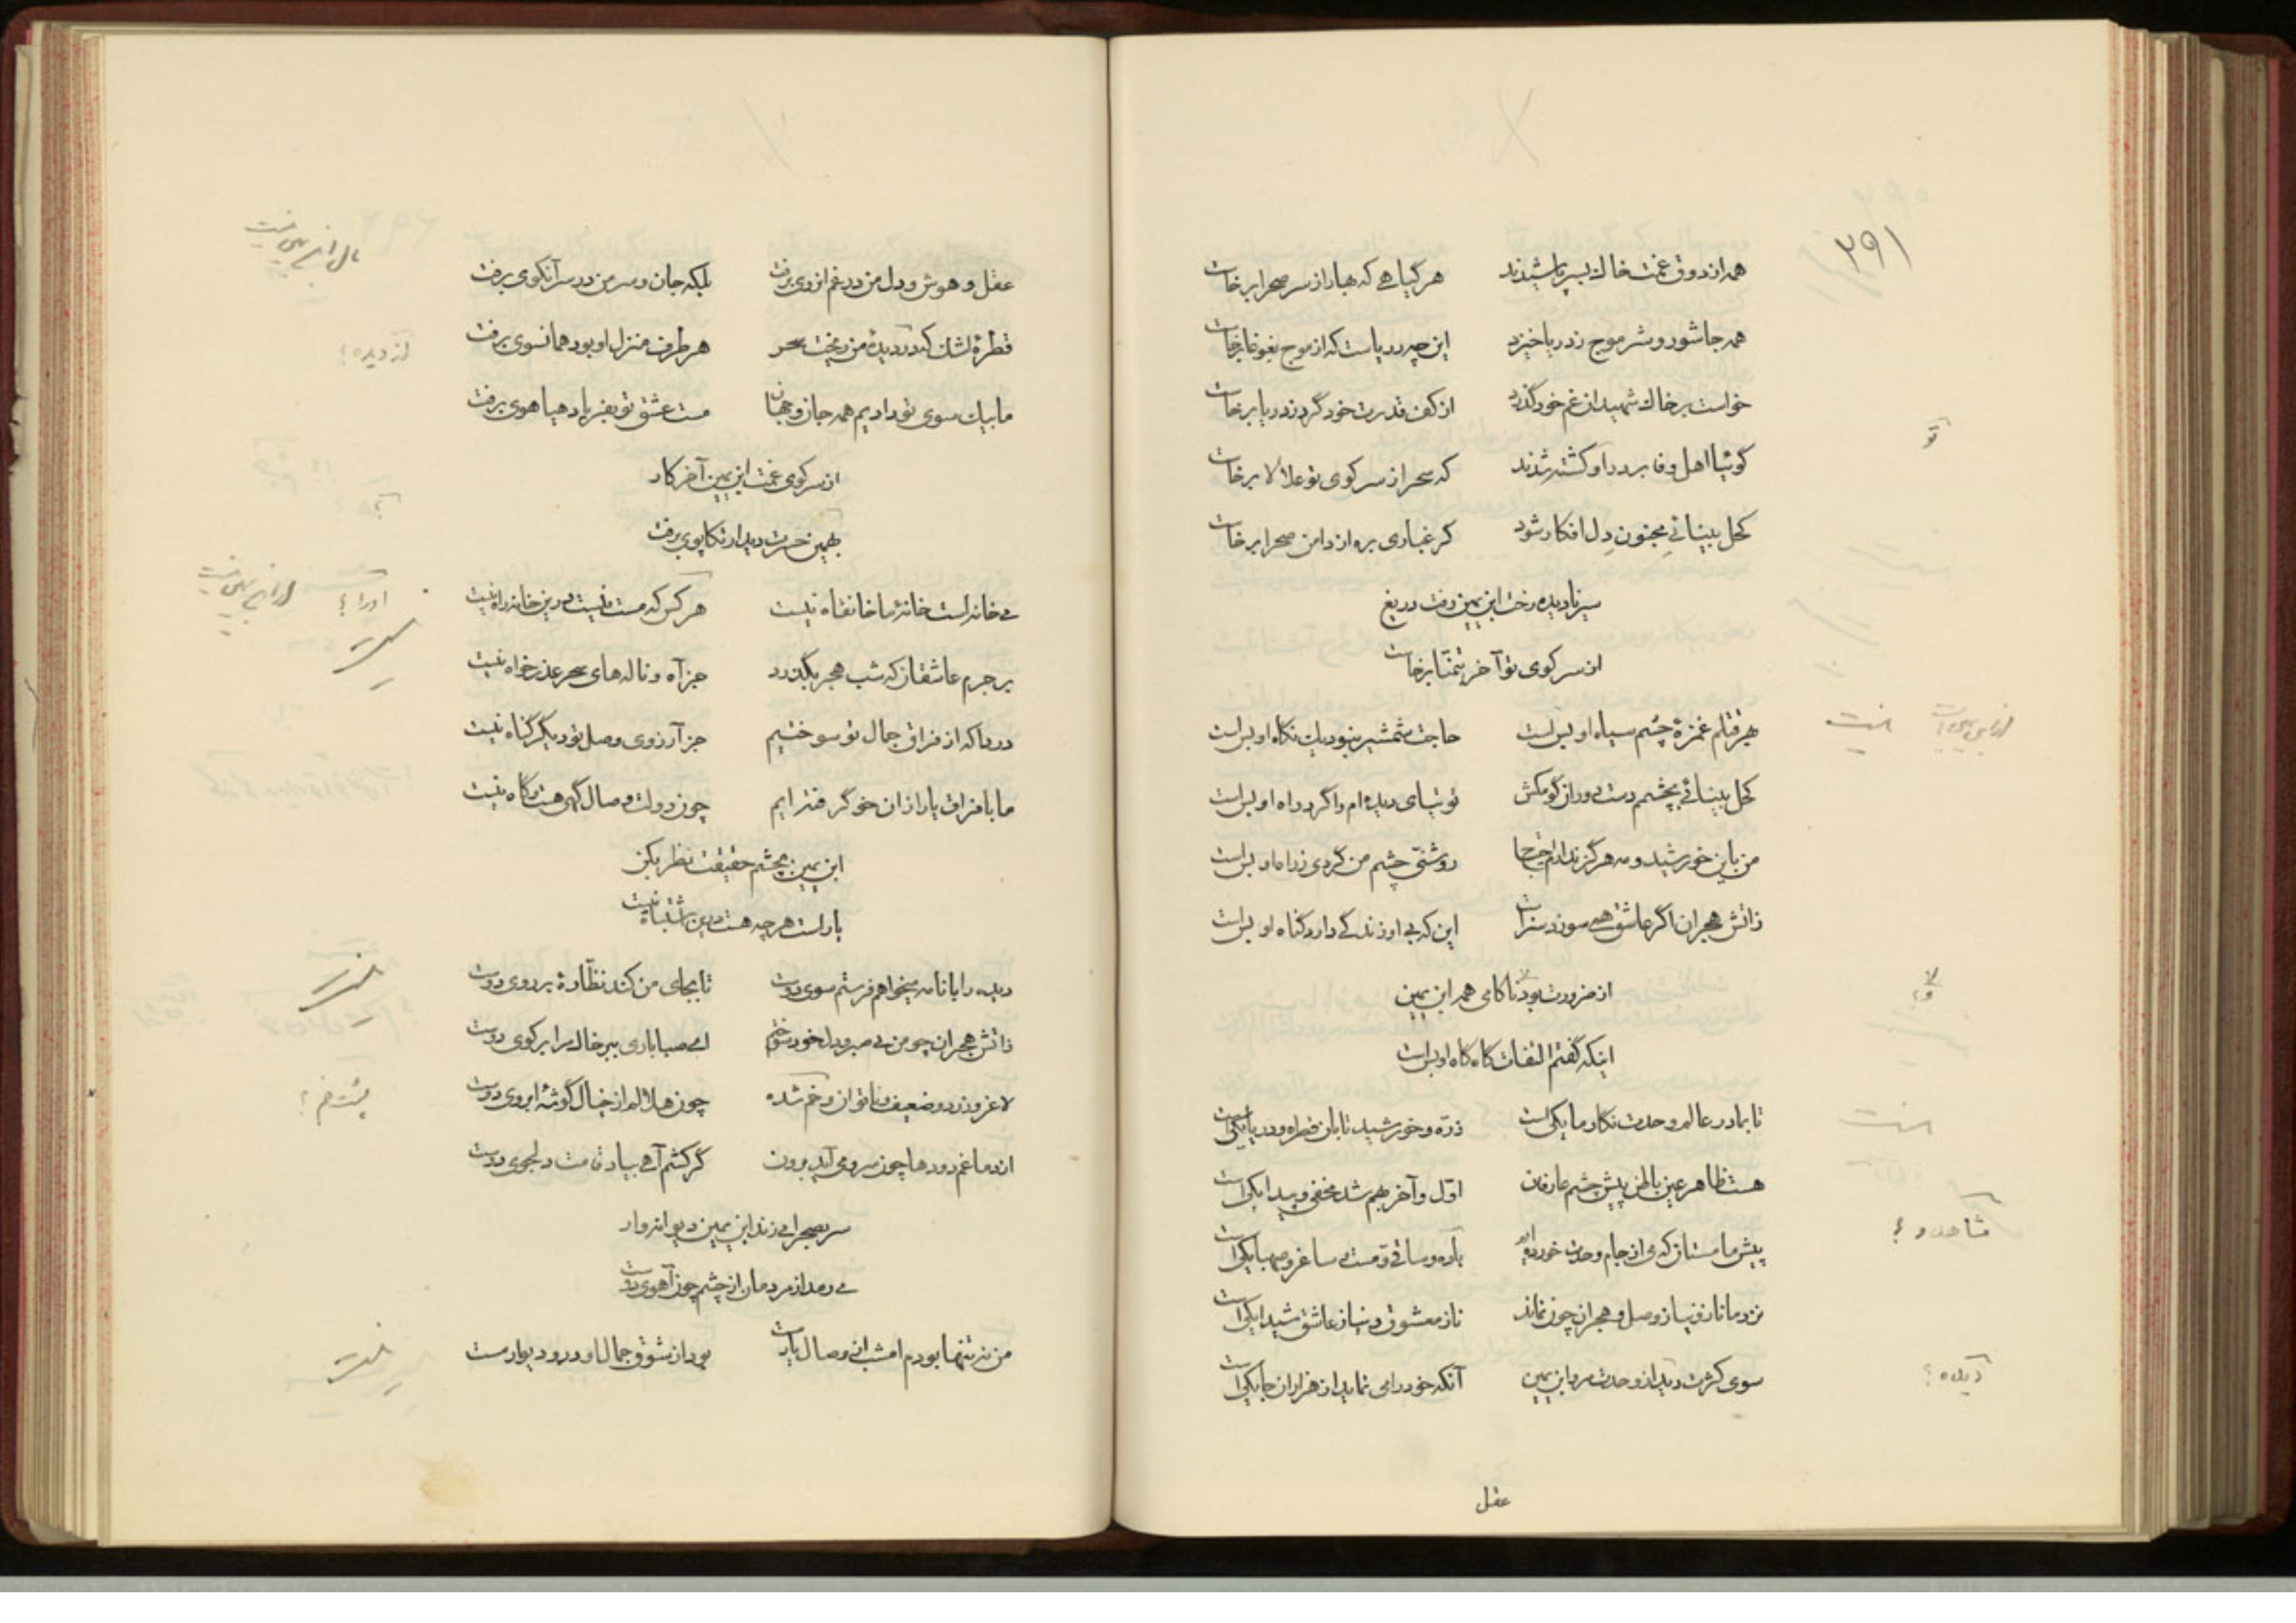 ۲۹۱
همه از ذوق غمت خاک بسر پاشیدند هر گیاهی که بهار از سر صحرا برخاست
همه جا شور و شر موج ز دریا خیزد این چه دریاست که از موج بغوغا برخاست
خواست بر خاک شهیدان غم خود گذرد از کف قدرت خود گرد ز دریا برخاست
تو
گوئیا اهل وفا بر در او کشته شدند که سحر از سر کوی تو علالا برخاست
کحل بینائی مجنون دل افکار شود گر غباری بره از دامن صحرا برخاست
سیر نادیده رخت ابن یمین رفت دریغ
از سر کوی تو آخر بتمنا برخاست
بهر قتلم غمزهٔ چشم سیاه او بس است حاجت شمشیر نبود یک نگاه او بس است
کحل بینائی بچشم دست دوران گو مکش توتیای دیده‌ام را گرد راه او بس است
من باین خورشید و مه هرگز ندارم احتیاج روشنی چشم من گردی ز راه او بس است
ز آتش هجران اگر عاشق همی سوزد سزاست این که بی او زندگی دارد گناه او بس است
از ضرورت بود ناکامی همه ابن یمین
اینکه گفتم التفات گاه گاه او بس است
تا بما در عالم وحدت نگار ما یکی است ذره و خورشید تابان قطره و دریا یکی است
هست ظاهر عین باطن پیش چشم عارفان اول و آخر بهم شد مخفی و پیدا یکی است
پیش ما مستان که می از جام وحدت خورده‌ایم باده و ساقی و مست و ساغر و صهبا یکی است
نزد ما ناز و نیاز و وصل و هجران چون نماند ناز معشوق و نیاز عاشق شیدا یکی است
سوی کثرت دید از وحدت مرو ابن یمین آنکه خود را می نماید از هزاران جا یکی است
دیده؟
عقل
عقل و هوش و دل من در غم از وی برفت بلکه جان و سر من در سر آن کوی برفت
قطرهٔ اشک که در دیدهٔ من ریخت سحر هر طرف منزل او بود همانسوی برفت
از دیده؟
ما بیک سوی تو دادیم همه جان و جهان مست عشق تو بفریاد و هیاهوی برفت
از سر کوی غمت ابن یمین آخر کار
بهمین حسرت دیدار تکاپوی برفت
میخانه است خانهٔ ما خانقاه نیست هر کس که مست نیست درین خانه راه نیست
او را؟
بر جرم عاشقان که شب هجر بگذرد جز آه و ناله‌های سحر عذرخواه نیست
دردا که از فراق جمال تو سوختیم جز آرزوی وصل تو دیگر گناه نیست
ما با فراق یار ازان خو گرفته‌ایم چون دولت وصال گهی هست و گاه نیست
ابن یمین بچشم حقیقت نظر بکن
یار است هر چه هست درین اشتباه نیست
دیده را با نامه میخواهم فرستم سوی دوست تا بجای من کند نظارهٔ بر روی دوست
ز آتش هجران چو من بی صبر و دل خود سوختم ای صبا باری ببر خاک مرا بر کوی دوست
لاغر و زرد و ضعیف و ناتوان و خم شده چون هلالم از خیال گوشهٔ ابروی دوست
از دماغم دودها چون سرو می آید برون گر کشم آهی بیاد قامت دلجوی دوست
سر بصحرا می زند ابن یمین دیوانه وار
می رمد از مردمان از چشم چون آهوی دوست
من نه تنها بودم امشب از وصال یار مست بود از شوق جمال او در و دیوار مست